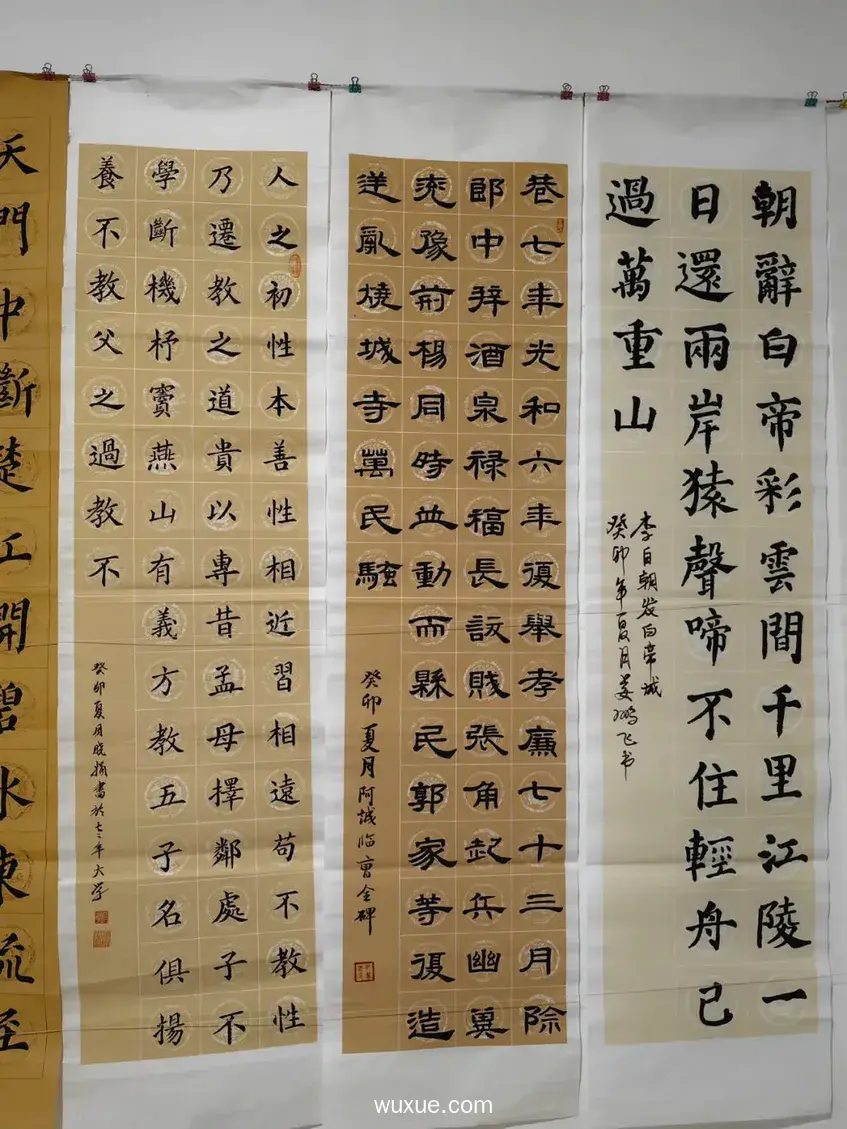 朝辭白帝彩雲間千里江陵一
日還兩岸猿聲啼不住輕舟已
過萬重山
李白朝发白帝城
癸卯年夏月姜鹏飞书
巷七年光和六年復舉孝廉七十三月除
郎中拜酒泉祿福長訞賊張角起兵幽冀
兗豫荊楊同時並動而縣民郭家等復造
逆亂燒城寺萬民騷
癸卯夏月阿誠临曹全碑
人之初性本善性相近習相遠苟不教性
乃遷教之道貴以專昔孟母擇鄰處子不
學斷機杼竇燕山有義方教五子名俱揚
養不教父之過教不
癸卯夏月晓楠書於
天門中斷楚江開碧水東流至
wuxue.com